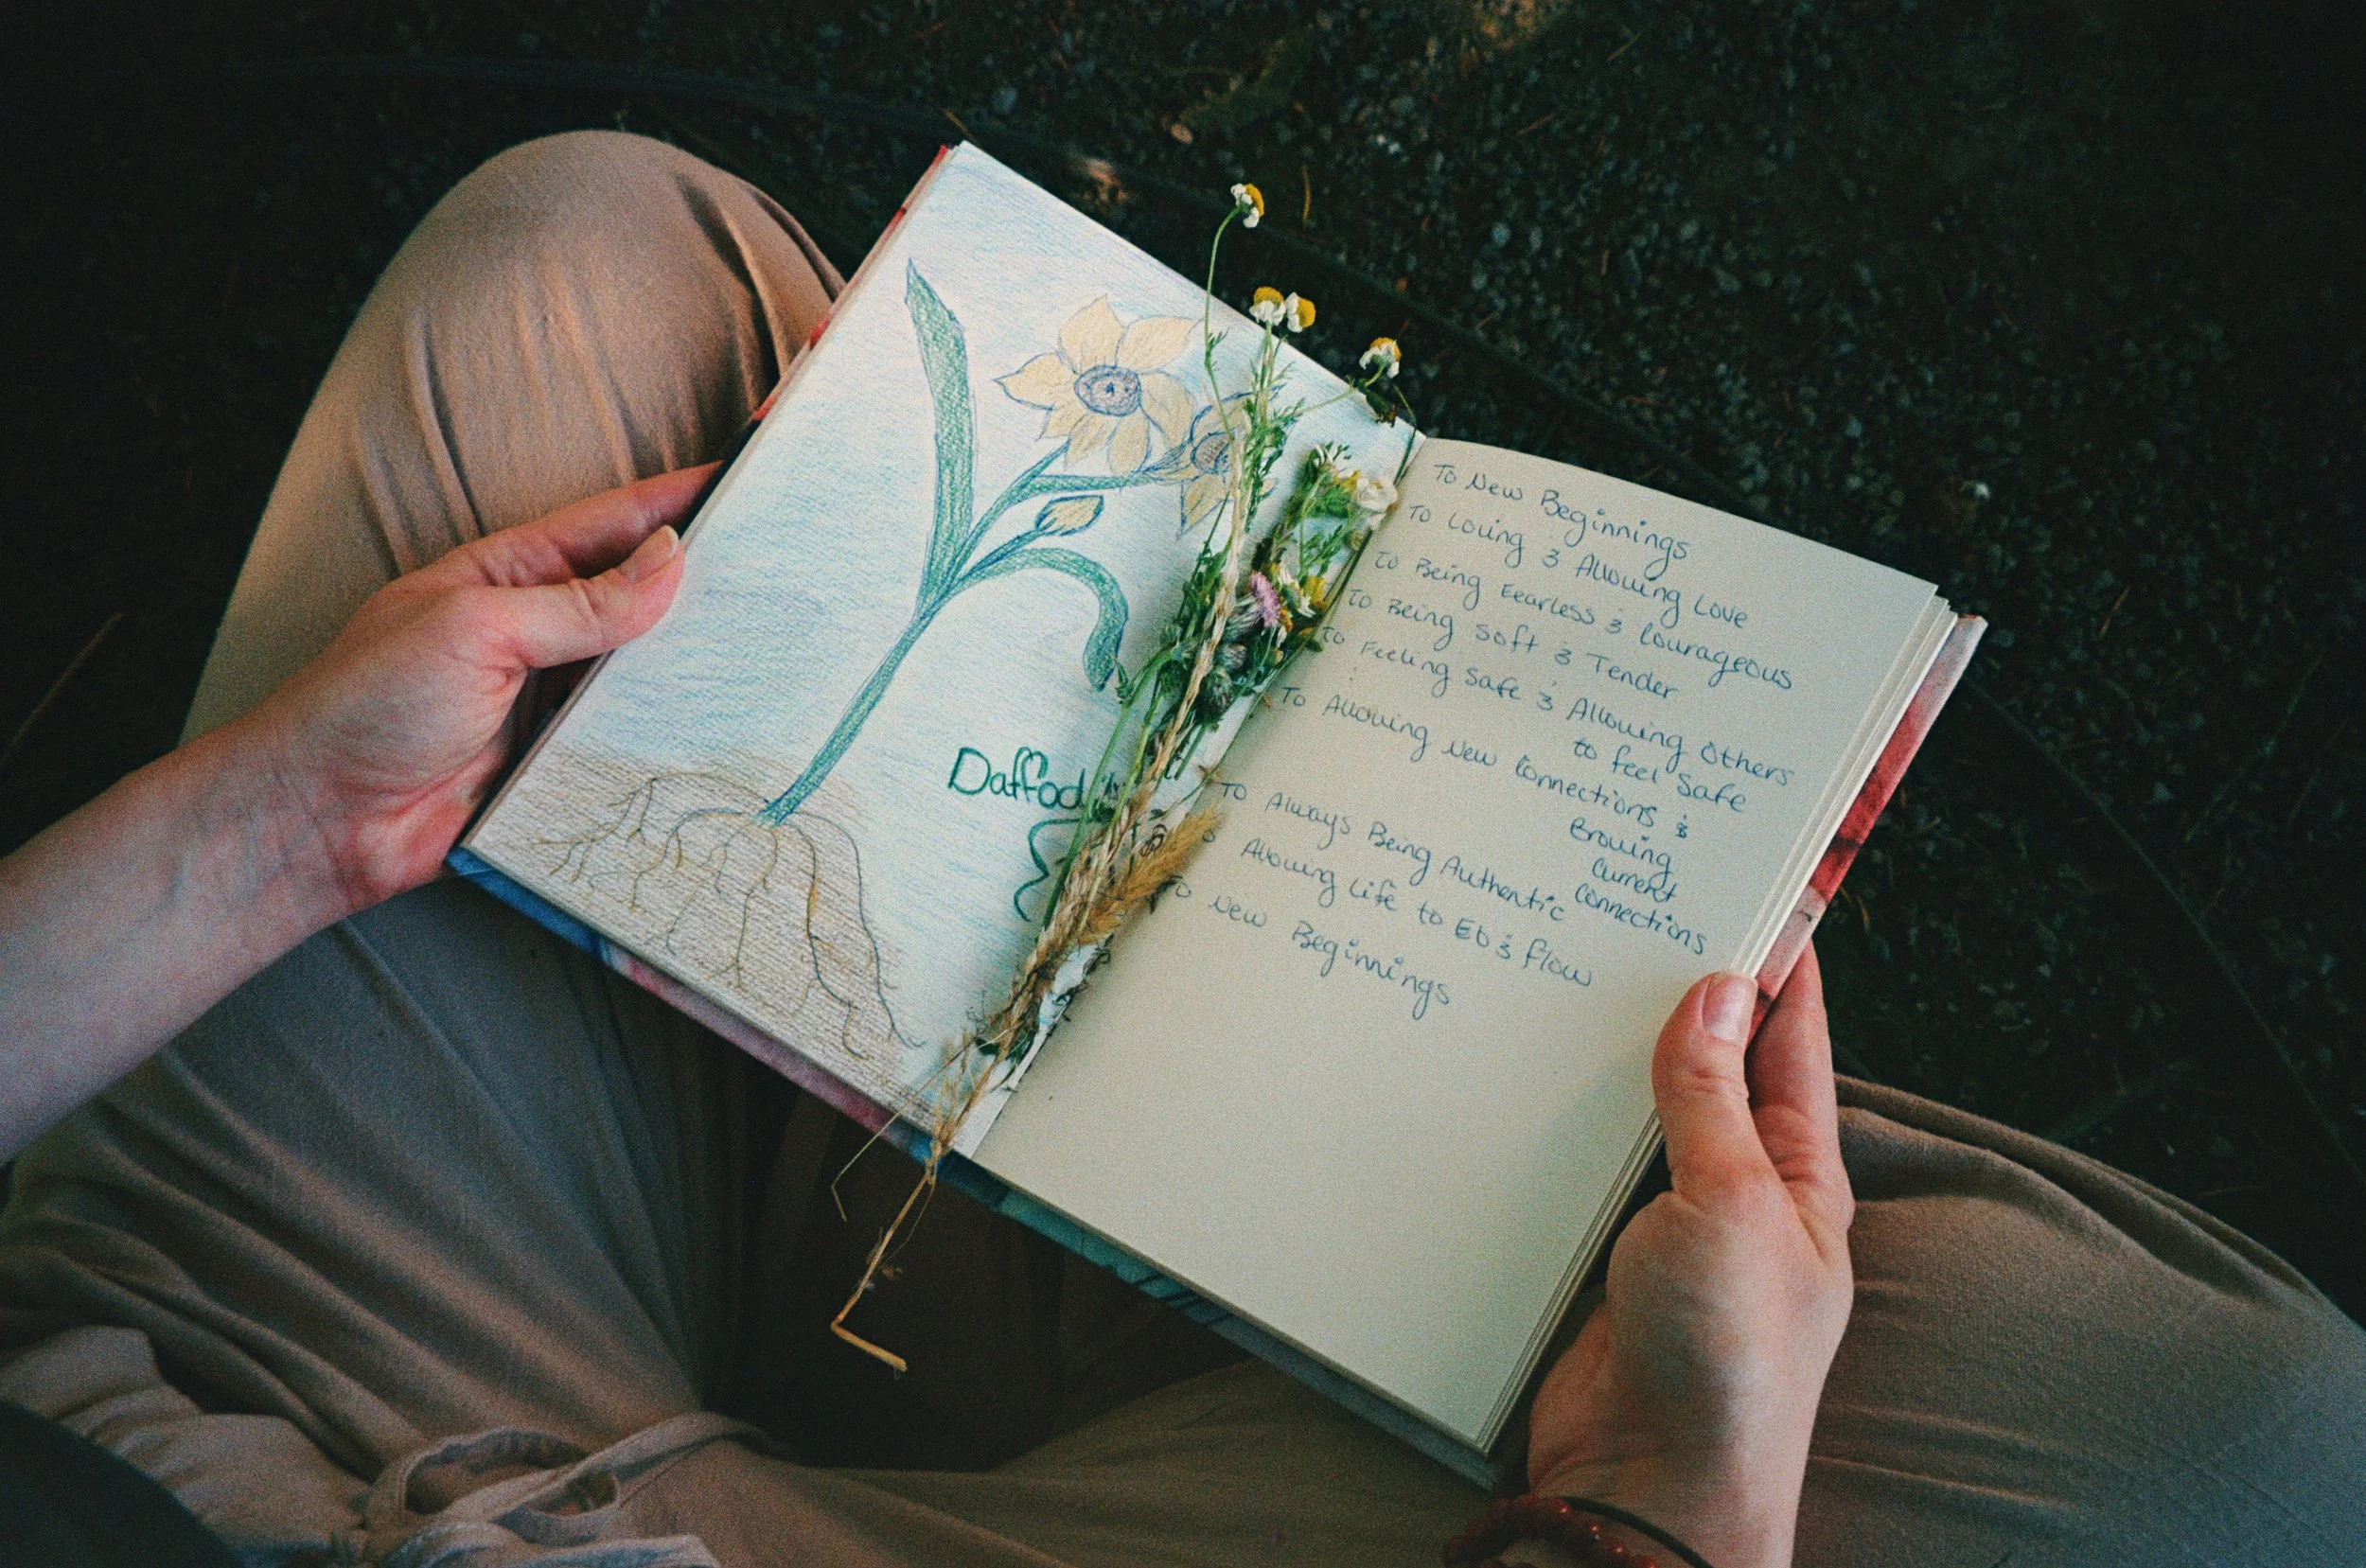 Daffodil
To New Beginnings
To Loving & Allowing Love
To Being Fearless & Courageous
To Being Soft & Tender
To Feeling Safe & Allowing Others
to feel Safe
To Allowing New Connections &
Growing
Current
Connections
To Always Being Authentic
To Allowing Life to Eb & flow
To New Beginnings